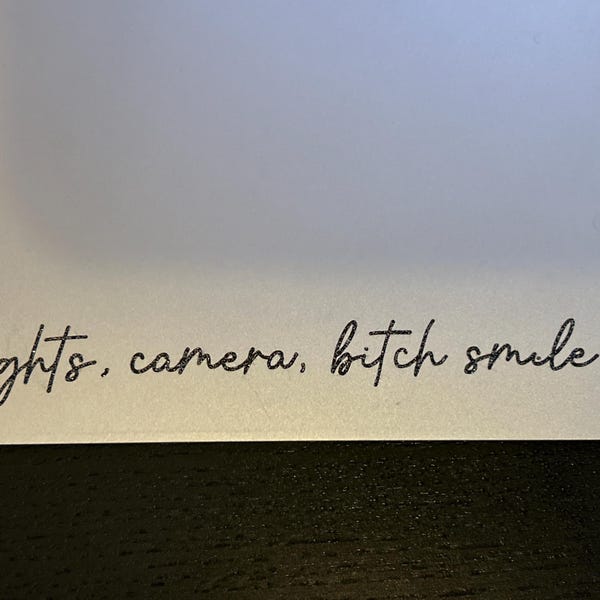 ghts, camera, bitch smile